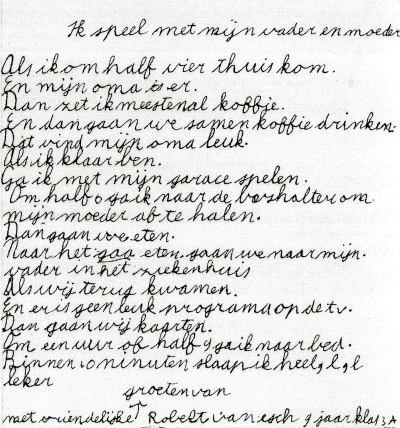 Ik speel met mijn vader en moeder
Als ik om half vier thuis kom.
En mijn oma is er.
Dan zet ik meestenal koffie.
En dan gaan we samen koffie drinken.
Dat vind mijn oma leuk.
Als ik klaar ben.
Ga ik met mijn garace spelen.
Om half 6 ga ik naar de bushalter om
mijn moeder ab te halen.
Dan gaan we eten.
Naar het gaa eten gaan we naar mijn.
vader in het ziekenhuis
Als wij terug kwamen.
En er is geen leuk programa op de tv.
Dan gaan wij kaarten.
Om een uur of half 9 ga ik naar bed.
Binnen 10 minuten slaap ik heel, l, l
leker
groeten van
met vriendelijke ↑ Robert van esch 9 jaar klas 3A